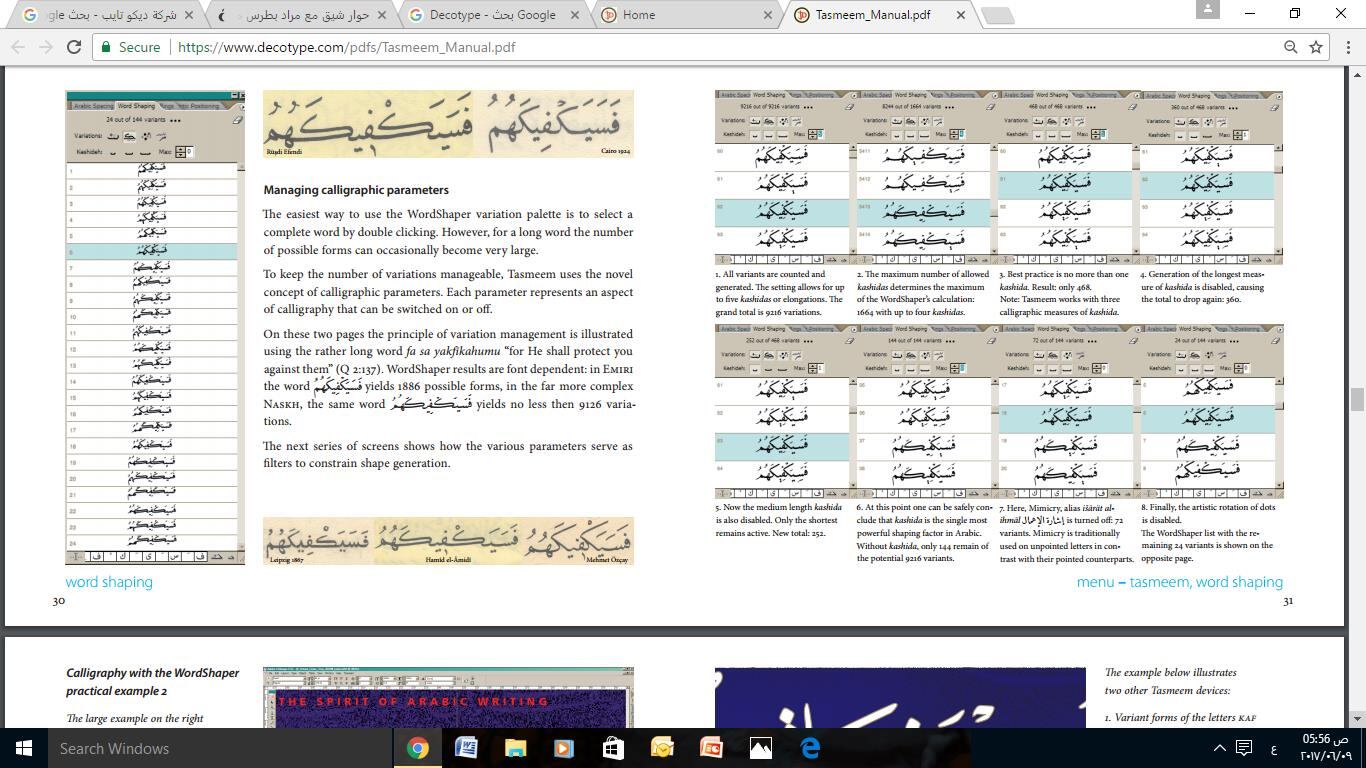 شركة ديكو تايب - بحث gle
حوار شيق مع مراد بطرس
Decotype - بحث Google
Home
Tasmeem_Manual.pdf
Secure https://www.decotype.com/pdfs/Tasmeem_Manual.pdf
Arabic Spacing Word Shaping Positioning
24 out of 144 variants
Variations:
Kashideh: Max: 0
1
2
3
4
5
6
7
8
9
10
11
12
13
14
15
16
17
18
19
20
21
22
23
24
فَسَيَكْفِيكَهُمُ فَسَيَكْفِيكَهُمُ
Rüşdi Efendi Cairo 1924
Managing calligraphic parameters
The easiest way to use the WordShaper variation palette is to select a
complete word by double clicking. However, for a long word the number
of possible forms can occasionally become very large.
To keep the number of variations manageable, Tasmeem uses the novel
concept of calligraphic parameters. Each parameter represents an aspect
of calligraphy that can be switched on or off.
On these two pages the principle of variation management is illustrated
using the rather long word fa sa yakfikahumu “for He shall protect you
against them” (Q 2:137). WordShaper results are font dependent: in EMIRI
the word فَسَيَكْفِيكَهُمُ yields 1886 possible forms, in the far more complex
NASKH, the same word فَسَيَكْفِيكَهُمُ yields no less then 9126 varia-
tions.
The next series of screens shows how the various parameters serve as
filters to constrain shape generation.
فَسَيَكْفِيكَهُمُ فَسَيَكْفِيكَهُمُ فَسَيَكْفِيكَهُمُ
Leipzig 1867 Hamid el-Âmidi Mehmet Özçay
word shaping
30
9216 out of 9216 variants
8244 out of 1664 variants
468 out of 468 variants
360 out of 468 variants
1. All variants are counted and
generated. The setting allows for up
to five kashidas or elongations. The
grand total is 9216 variations.
2. The maximum number of allowed
kashidas determines the maximum
of the WordShaper's calculation:
1664 with up to four kashidas.
3. Best practice is no more than one
kashida. Result: only 468.
Note: Tasmeem works with three
calligraphic measures of kashida.
4. Generation of the longest meas-
ure of kashida is disabled, causing
the total to drop again: 360.
252 out of 468 variants
144 out of 144 variants
72 out of 144 variants
24 out of 144 variants
5. Now the medium length kashida
is also disabled. Only the shortest
remains active. New total: 252.
6. At this point one can be safely con-
clude that kashida is the single most
powerful shaping factor in Arabic.
Without kashida, only 144 remain of
the potential 9216 variants.
7. Here, Mimicry, alias išārāt al-
ihmāl إشارة الإهمال is turned off: 72
variants. Mimicry is traditionally
used on unpointed letters in con-
trast with their pointed counterparts.
8. Finally, the artistic rotation of dots
is disabled.
The WordShaper list with the re-
maining 24 variants is shown on the
opposite page.
menu – tasmeem, word shaping
31
Calligraphy with the WordShaper
practical example 2
The large example on the right
THE SPIRIT OF ARABIC WRITING
The example below illustrates
two other Tasmeem devices:
1. Variant forms of the letters KAF
Search Windows
ع
05:56 ص
٢٠١٧/٠٦/٠٩